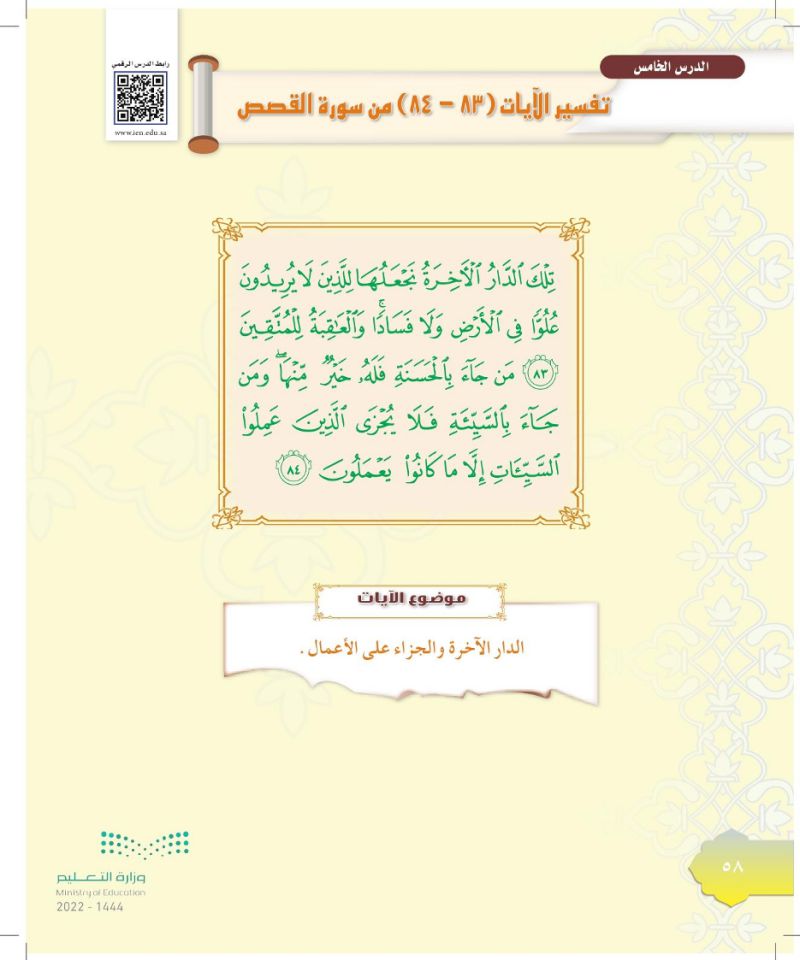 الدرس الخامس
رابط الدرس الرقمي
www.ien.edu.sa
تفسير الآيات (٨٣ – ٨٤) من سورة القصص
تِلْكَ ٱلدَّارُ ٱلْأَخِرَةُ نَجْعَلُهَا لِلَّذِينَ لَا يُرِيدُونَ
عُلُوًّا فِى ٱلْأَرْضِ وَلَا فَسَادًا ۚ وَٱلْعَٰقِبَةُ لِلْمُتَّقِينَ
٨٣ مَن جَآءَ بِٱلْحَسَنَةِ فَلَهُۥ خَيْرٌ مِّنْهَا ۖ وَمَن
جَآءَ بِٱلسَّيِّئَةِ فَلَا يُجْزَى ٱلَّذِينَ عَمِلُوا۟
ٱلسَّيِّـَٔاتِ إِلَّا مَا كَانُوا۟ يَعْمَلُونَ ٨٤
موضوع الآيات
الدار الآخرة والجزاء على الأعمال .
٥٨
وزارة التعليم
Ministry of Education
2022 - 1444